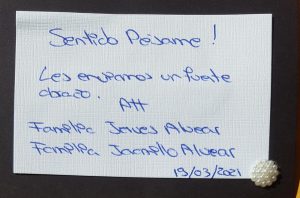 Sentido Pésame!
Les enviamos un fuerte
abrazo.
Att
Familia Alvear
Familia Jaramillo Alvear
19/03/2021